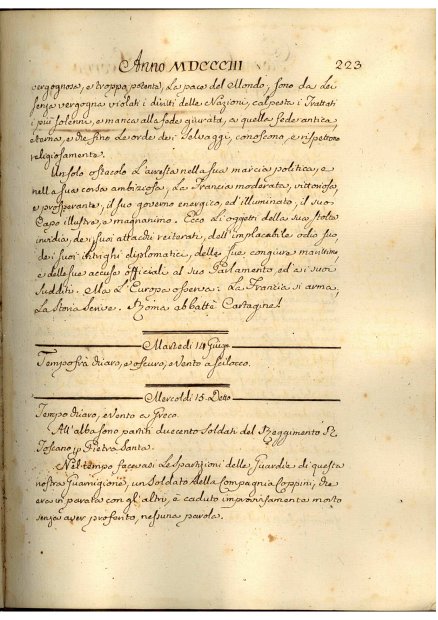 Anno MDCCCIII 223
vergognosa, e troppa potenza, la pace del Mondo; sono da Lei
senza vergogna violati i diritti delle Nazioni, calpesta i Trattati
i più solenni, e manca alla fede giurata, a quella fede antica
eterna, e che fino le orde dei Selvaggi, conoscono, e rispettano
religiosamente.
Un solo ostacolo L'arresta nella sua marcia politica, e
nella sua corsa ambiziosa, La Francia moderata, vittoriosa,
e prosperante, il suo governo energico, ed illuminato, il suo
Capo illustre, e magnanimo. Ecco L'oggetti della sua stolta
invidia, de i suoi attacchi reiterati, dell'implacabile odio suo,
de i suoi intrighi diplomatici, delle sue congiure marittime
e delle sue accuse officiali al suo Parlamento, ed a i suoi
sudditi. Ma L'Europa osserva: La Francia si arma,
La Storia scrive. Roma abbattè Cartagine!
Martedi 14 Giug.o
Tempo frà chiaro, e oscuro, e vento a scilocco.
Mercoldi 15 Detto
Tempo chiaro, e vento a Greco.
All'alba sono partiti duecento Soldati del Reggimento R.
Toscano p Pietra Santa.
Nel tempo facevasi Le spartizioni delle Guardie di questa
nostra Guarnigione, un Soldato della Compagnia Coppini, che
era in parata con gl'altri, è caduto improvisamente morto
senza aver proferito, nessuna parola.